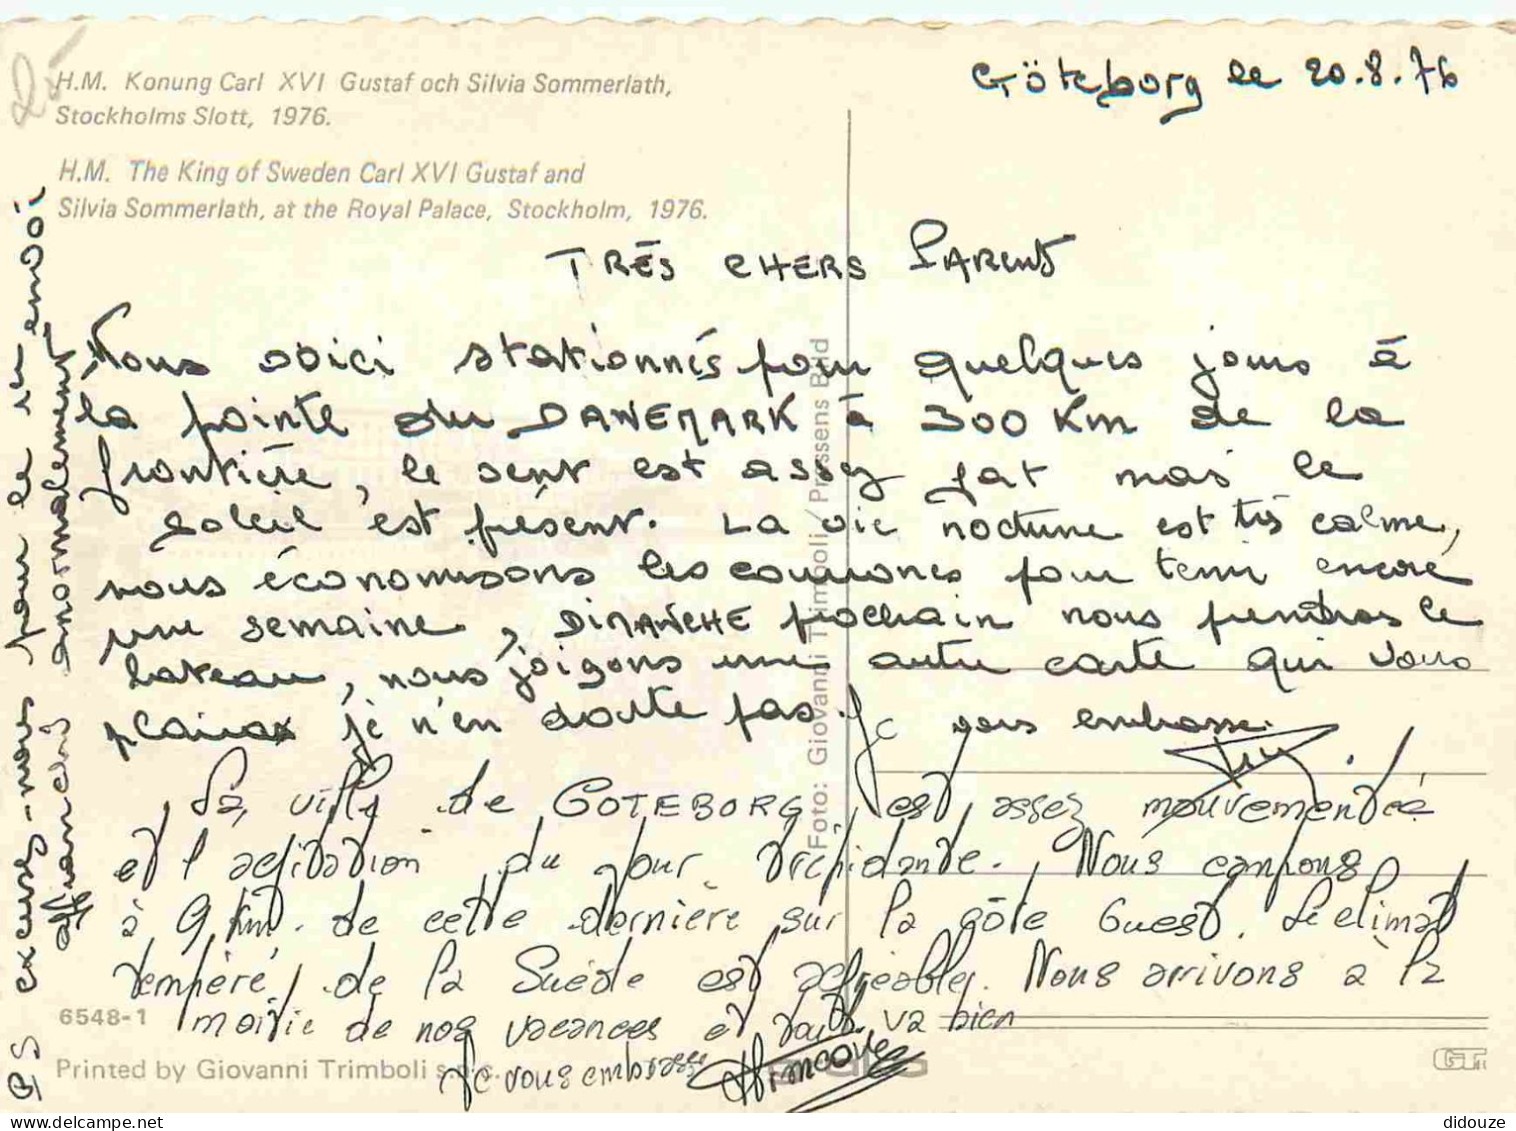 H.M. Konung Carl XVI Gustaf och Silvia Sommerlath,
Stockholms Slott, 1976.
H.M. The King of Sweden Carl XVI Gustaf and
Silvia Sommerlath, at the Royal Palace, Stockholm, 1976.
Göteborg le 20.8.76
TRÈS CHERS PARENTS
Nous voici stationnés pour quelques jours à
la pointe du DANEMARK à 300 Km de la
frontière, le vent est assez fort mais le
soleil est présent. LA vie nocturne est très calme,
nous économisons les couronnes pour tenir encore
une semaine, DIMANCHE prochain nous prendrons le
bateau, nous joigons une autre carte qui vous
plaira je n'en doute pas. Je vous embrasse.
La ville de GOTEBORG est assez mouvementée
et l'agitation du jour trépidante. Nous campons
à 9 km. de cette dernière sur la côte Ouest. Le climat
tempéré de la Suède est agréable. Nous arrivons à la
moitié de nos vacances et tout va bien
Je vous embrasse
PS excusez-nous pour le non envoi
anormalement
Foto: Giovanni Trimboli / Pressens Bild
6548-1
Printed by Giovanni Trimboli s.n.c.
GT
didouze